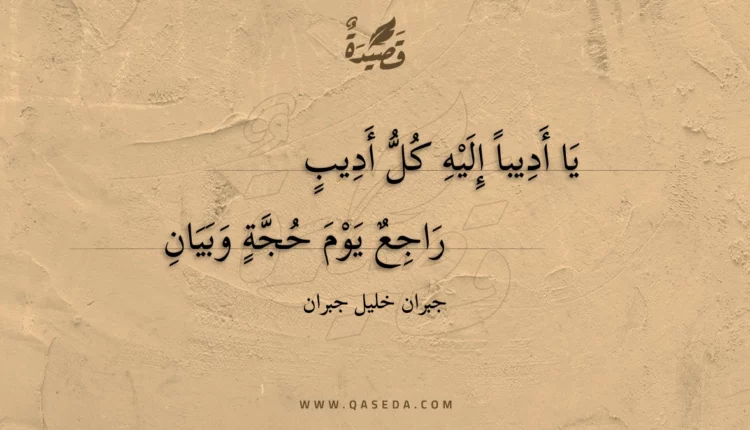 قَصِيدَةٌ
يَا أَدِيباً إِلَيْهِ كُلُّ أَدِيبٍ
رَاجِعٌ يَوْمَ حُجَّةٍ وَبَيَانِ
جبران خليل جبران
WWW.QASEDA.COM